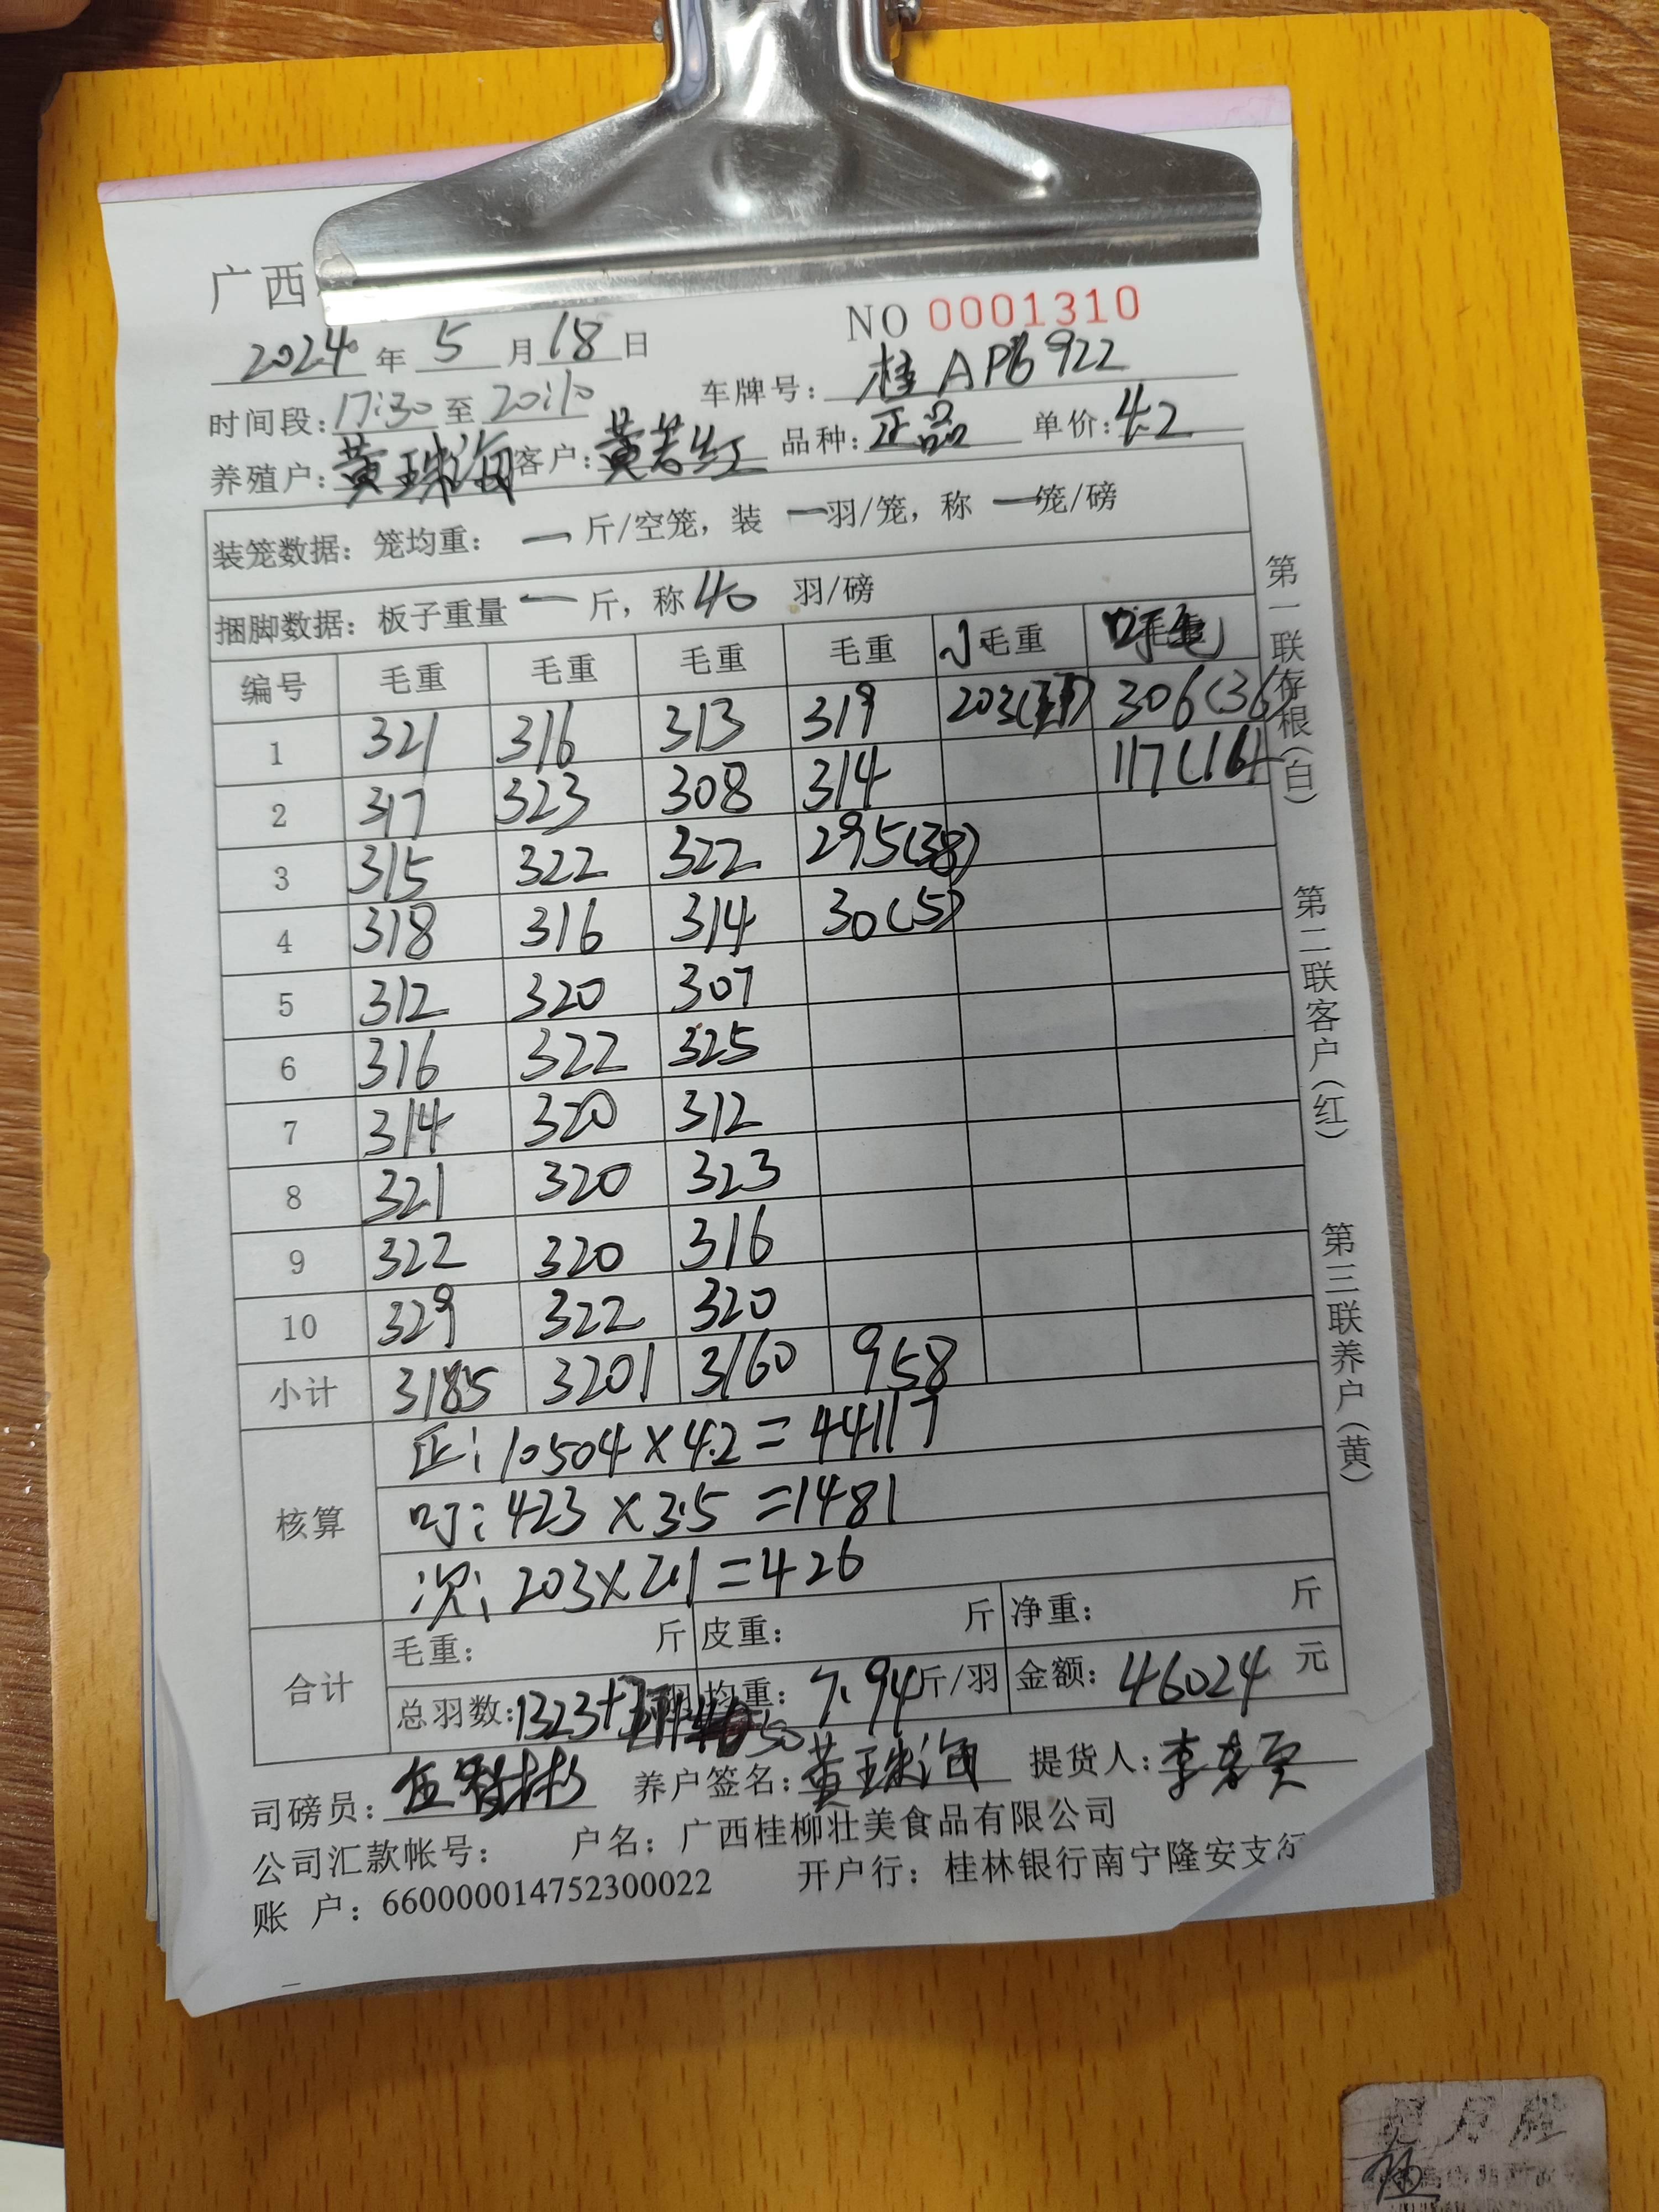 广西
NO 0001310
2024 年 5 月 18 日
时间段: 17:30 至 20:10 车牌号: 桂AP6922
养殖户: 黄珠海 客户: 黄若红 品种: 正品 单价: 4.2
装笼数据: 笼均重: 一 斤/空笼, 装 一 羽/笼, 称 一 笼/磅
捆脚数据: 板子重量 一 斤, 称 40 羽/磅
编号 毛重 毛重 毛重 毛重 小毛重
1 321 316 313 319 203( 306(36)
2 317 323 308 314 117(16)
3 315 322 322 295(38)
4 318 316 314 30(5)
5 312 320 307
6 316 322 325
7 314 320 312
8 321 320 323
9 322 320 316
10 329 322 320
小计 3185 3201 3160 958
核算 正: 10504×4.2=44117
叮: 423×3.5=1481
次: 203×2.1=426
合计 毛重: 斤 皮重: 斤 净重: 斤
总羽数: 1323+ 均重: 7.94 斤/羽 金额: 46024 元
司磅员: 养户签名: 黄珠海 提货人:
公司汇款帐号: 户名: 广西桂柳壮美食品有限公司
账 户: 660000014752300022 开户行: 桂林银行南宁隆安支行
第一联存根(白)
第二联客户(红)
第三联养户(黄)